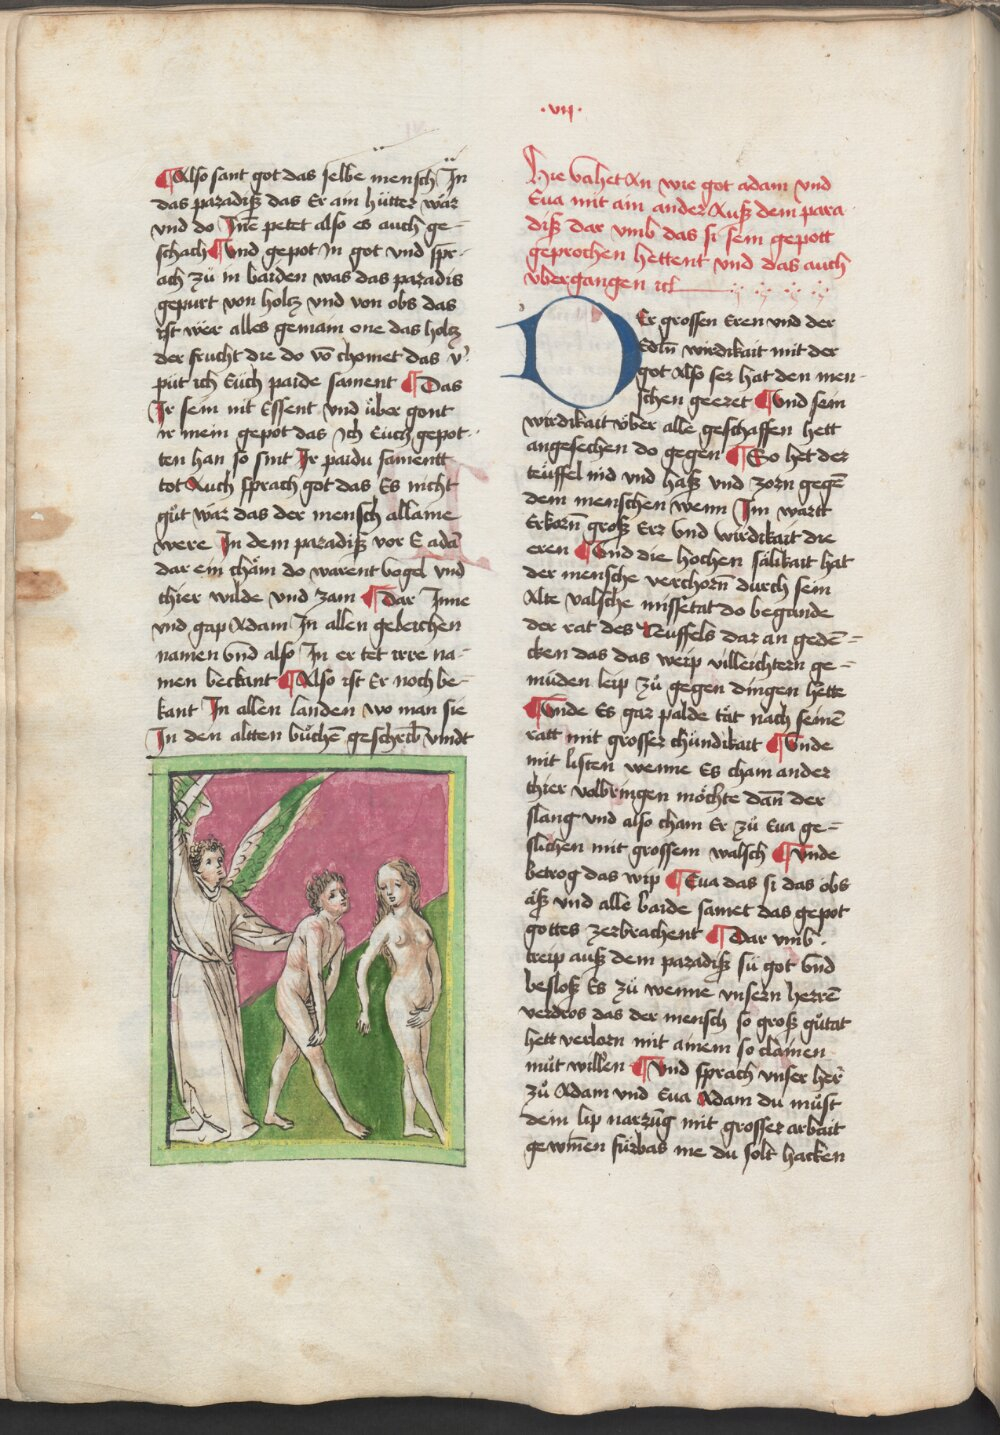 ·vij·
Also sant got das selbe mensch In
das paradiß das Er ain hütter wär
und do Jnē petet also es auch ge-
schach Und gepot In got und spr-
ach zů in baiden was das paradis
gepurt von holtz und von obs das
ist wer alles gemain one das holtz
der frucht die do vō chomet das v'
püt ich Euch paide sament Das
Ir sein nit Essent und über gont
ir mein gepot das Ich Euch gepot-
ten han so sint Ir paidu samentt
tot Auch sprach got das Es nicht
gůt wär das der mensch allaine
were In dem paradiß vor E adā
dar ein chäm do warent vogel und
thier wilde und zam Dar Inne
und gap Adam In allen geleichen
namen und also In er tet irre na-
men beckant Also ist Er noch be-
kant In allen landen wo man sie
In den altten bůchē geschribē vindt
Hie vahet An wie got adam und
Eua mit ain ander Auß dem para
diß dar umb das si sein gepott
geprochen hettent und das auch
ubergangen etc
DEr grossen Eren und der
Edlñ wirdikait mit der
got Also ser hat den men-
schen geeret Und sein
wirdikait über alle geschaffen hett
angesechen do gegen So het der
teüffel nid und haß und zorn gegē
dem menschen wenn Im wartt
Erkorñ groß Err und wirdikait die
eren Und die hochen sälikait hat
der mensche verchorñ durch sein
Alte valsche missetat do begande
der rat des Teuffels dar an gedē-
cken das das weip villeichtern ge-
müden leip zů gegen dingen hette
Unde Es gar palde tät nach seinē
ratt mit grosser chündikait Unde
mit listen wenne Es chain ander
thier volbringen möchte dañ der
slang und also cham Er zů Eua ge-
slichen mit grossem walsch Unde
betrog das wip Eua das si das obs
äß und alle baide samet das gepot
gottes zerbrachent Dar umb
treip auß dem paradiß sü got und
besloß Es zů wenne unsern herrē
verdros das der mensch so groß gůtat
hett verlorn mit ainem so clainen
můt willen Und sprach unser her
zů Adam und Eua Adam du můst
dein lip narzūg mit grosser arbait
gewinen fürbas me du solt hacken